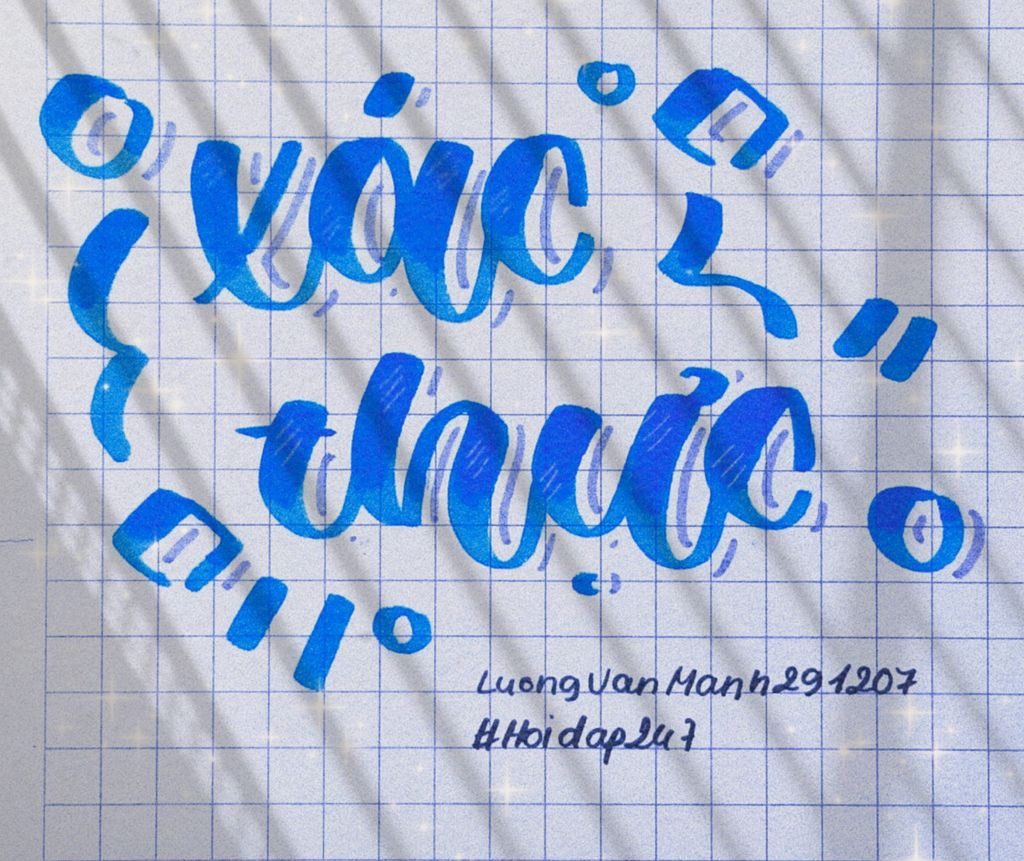 xác
thực
LuongVanManh291207
#Hoidap247